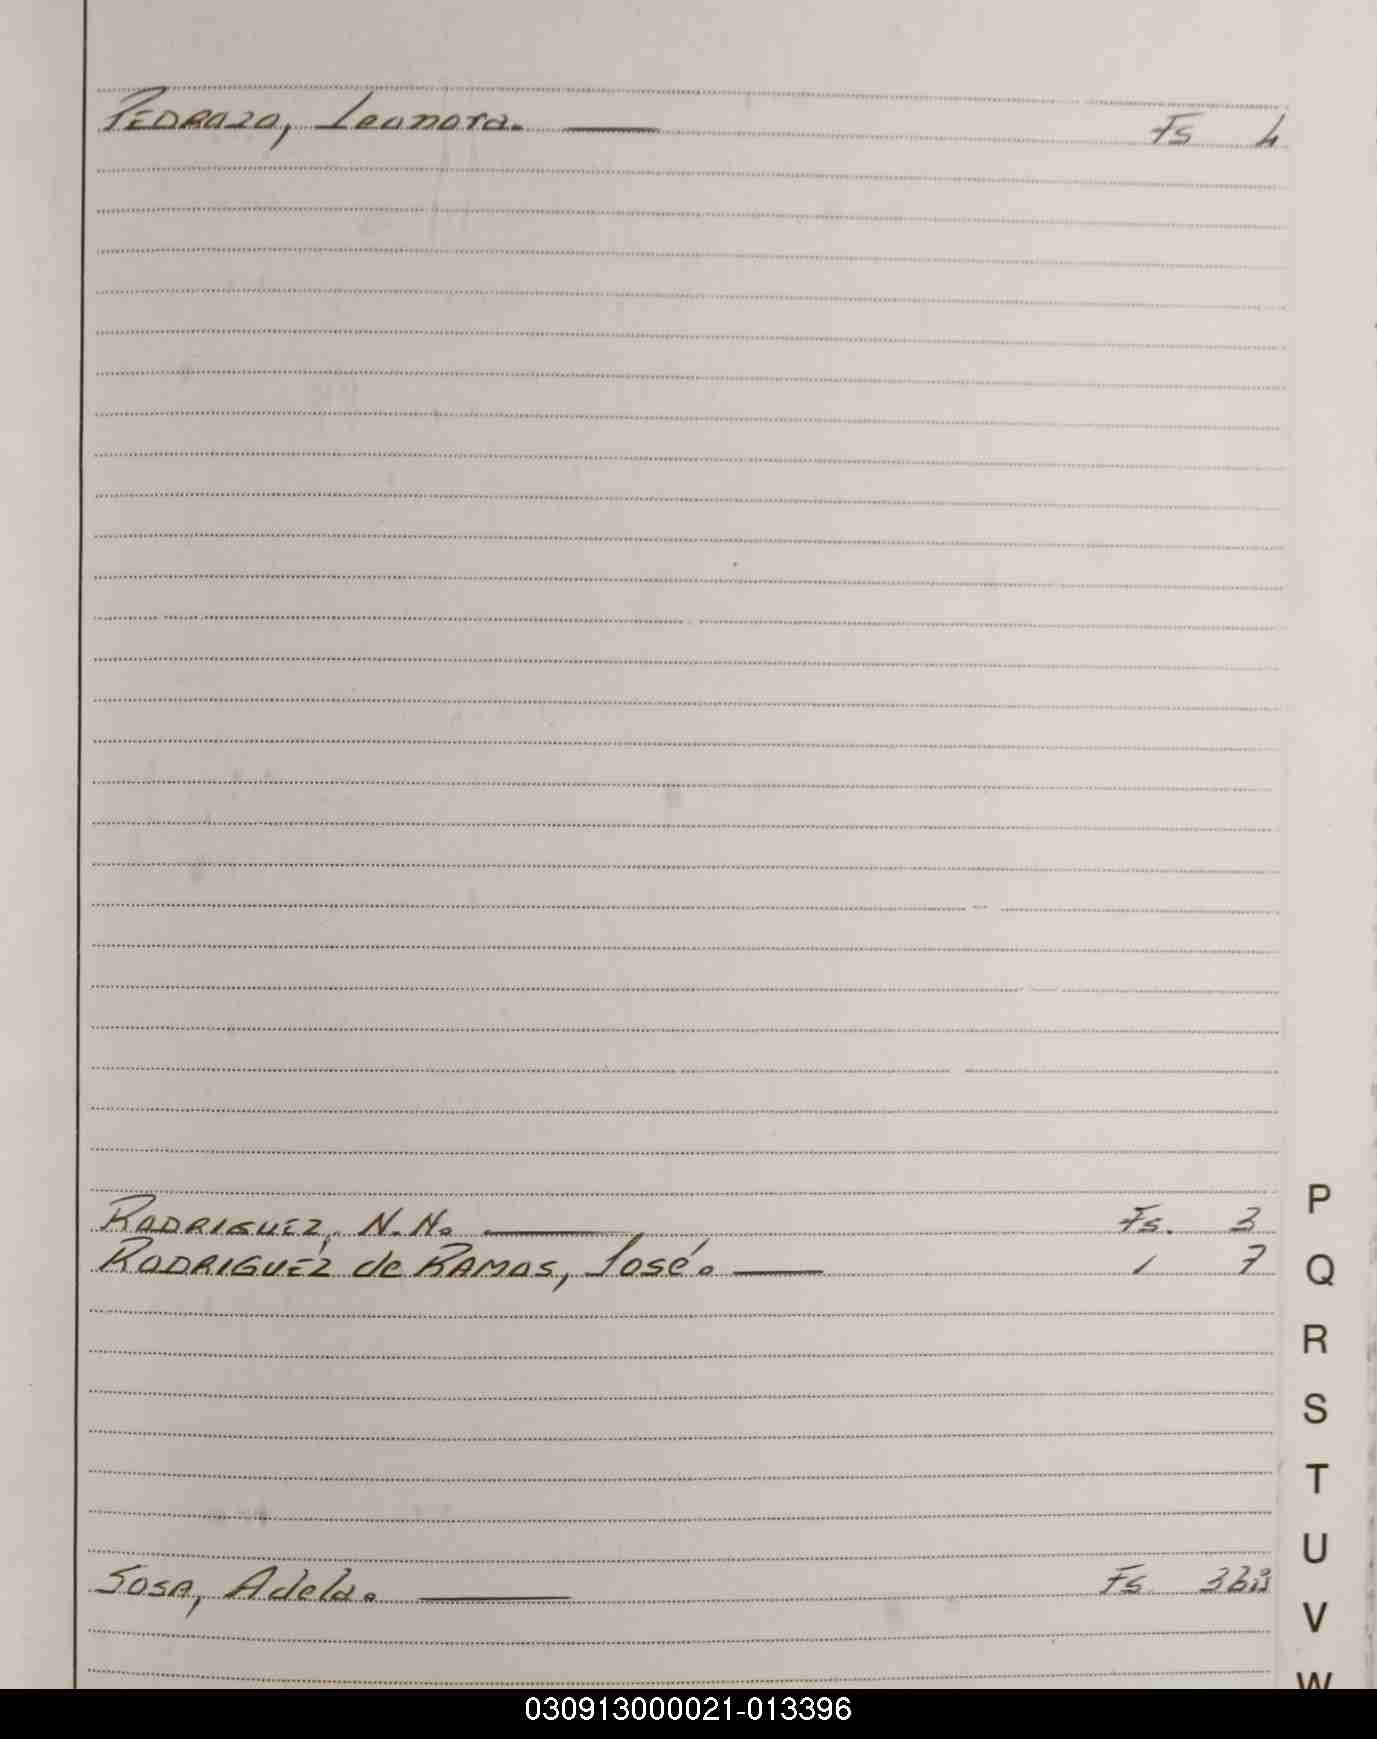 PEDRAZA, Leonora. Fs 4
RODRIGUEZ, N.N. Fs. 3
RODRIGUEZ de RAMOS, José. / 7
SOSA, Adela. Fs. 3bis
P
Q
R
S
T
U
V
W
030913000021-013396